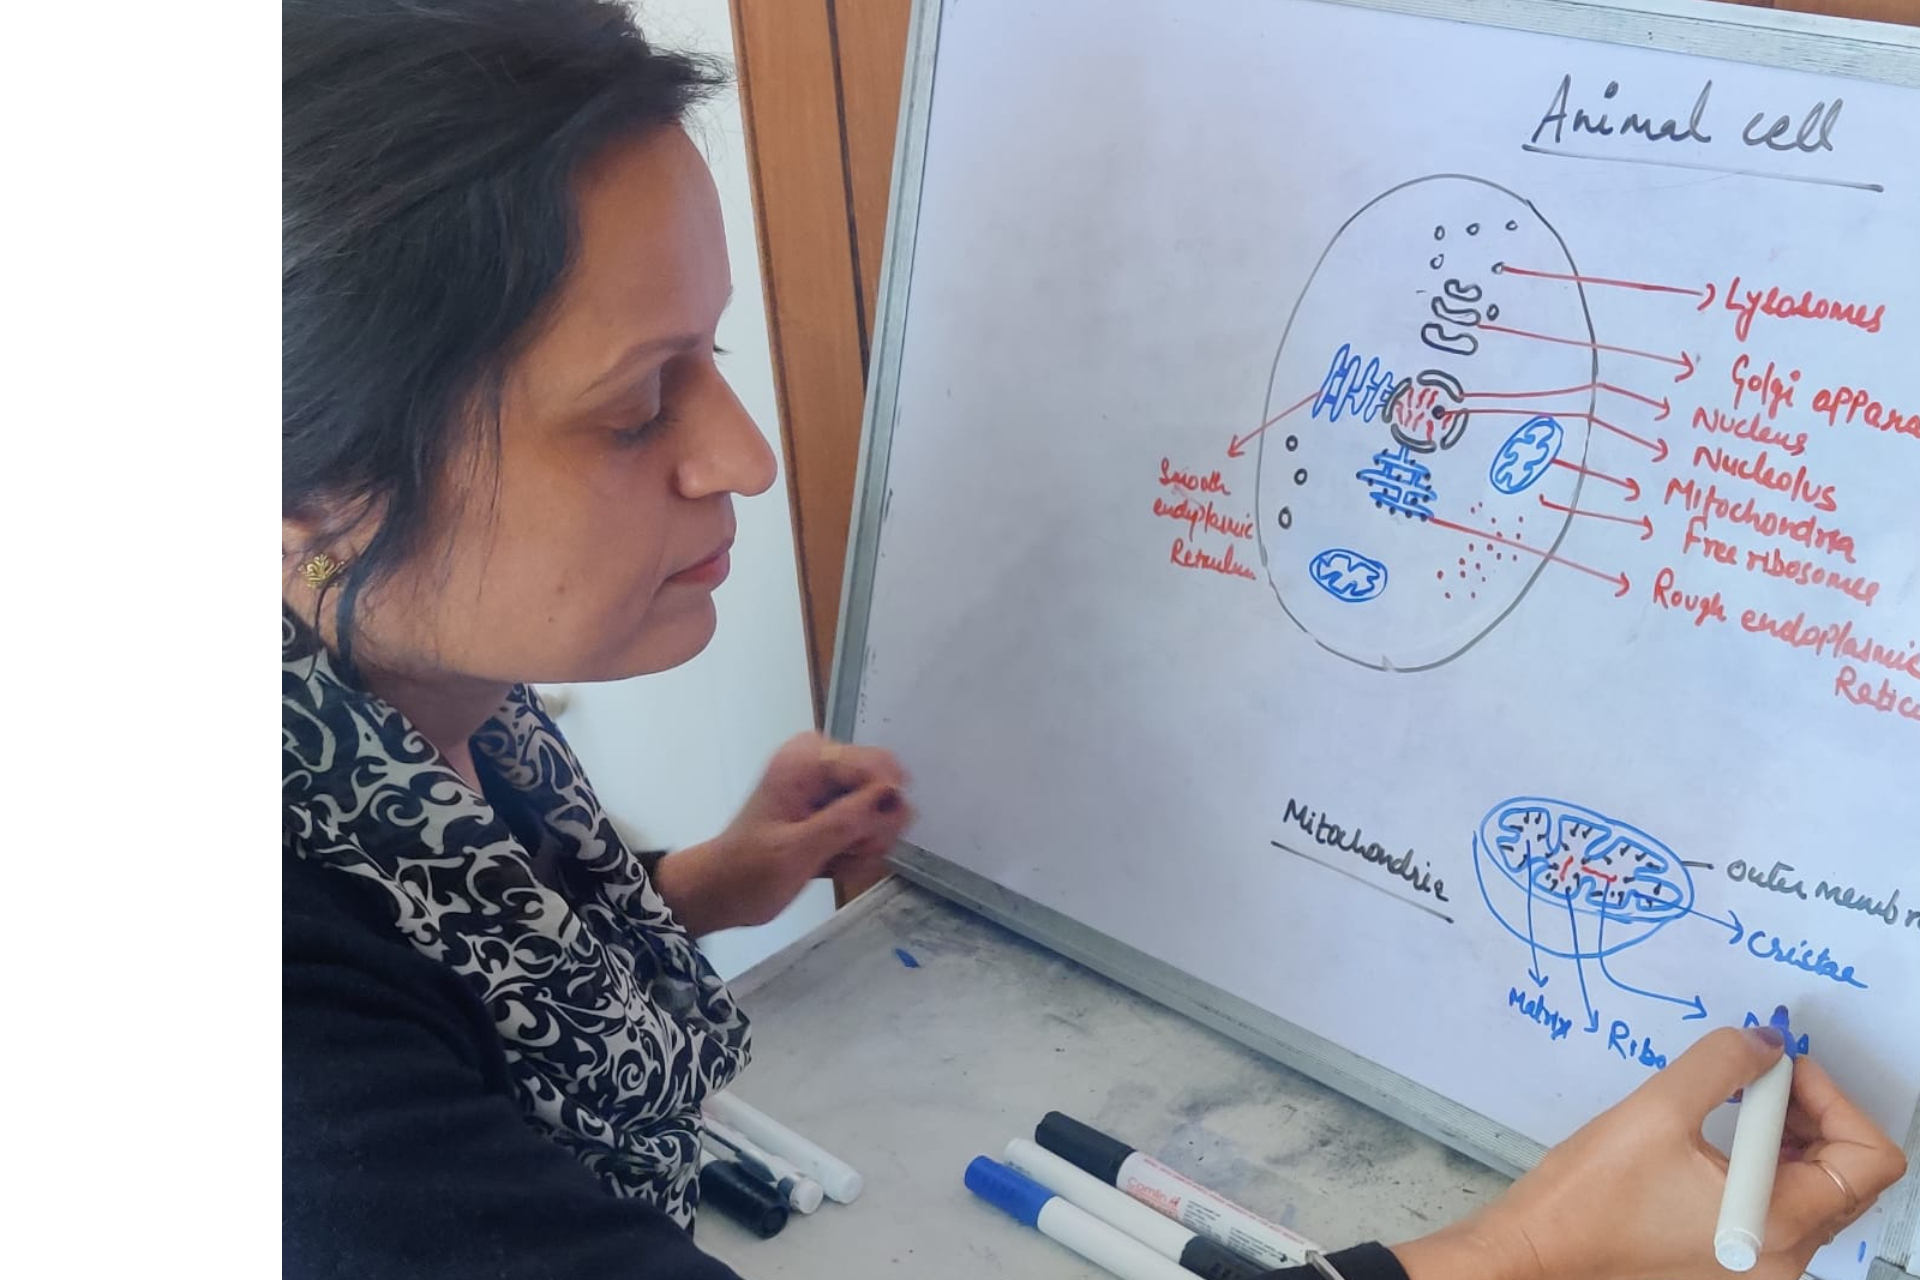 Animal cell
Lysosomes
Golgi appara
Nucleus
Nucleolus
Mitochondria
Free ribosomes
Rough endoplasmic
Retic
Smooth
endoplasmic
Mitochondria
outer membr
cristae
Matrix
Ribo
Camlin